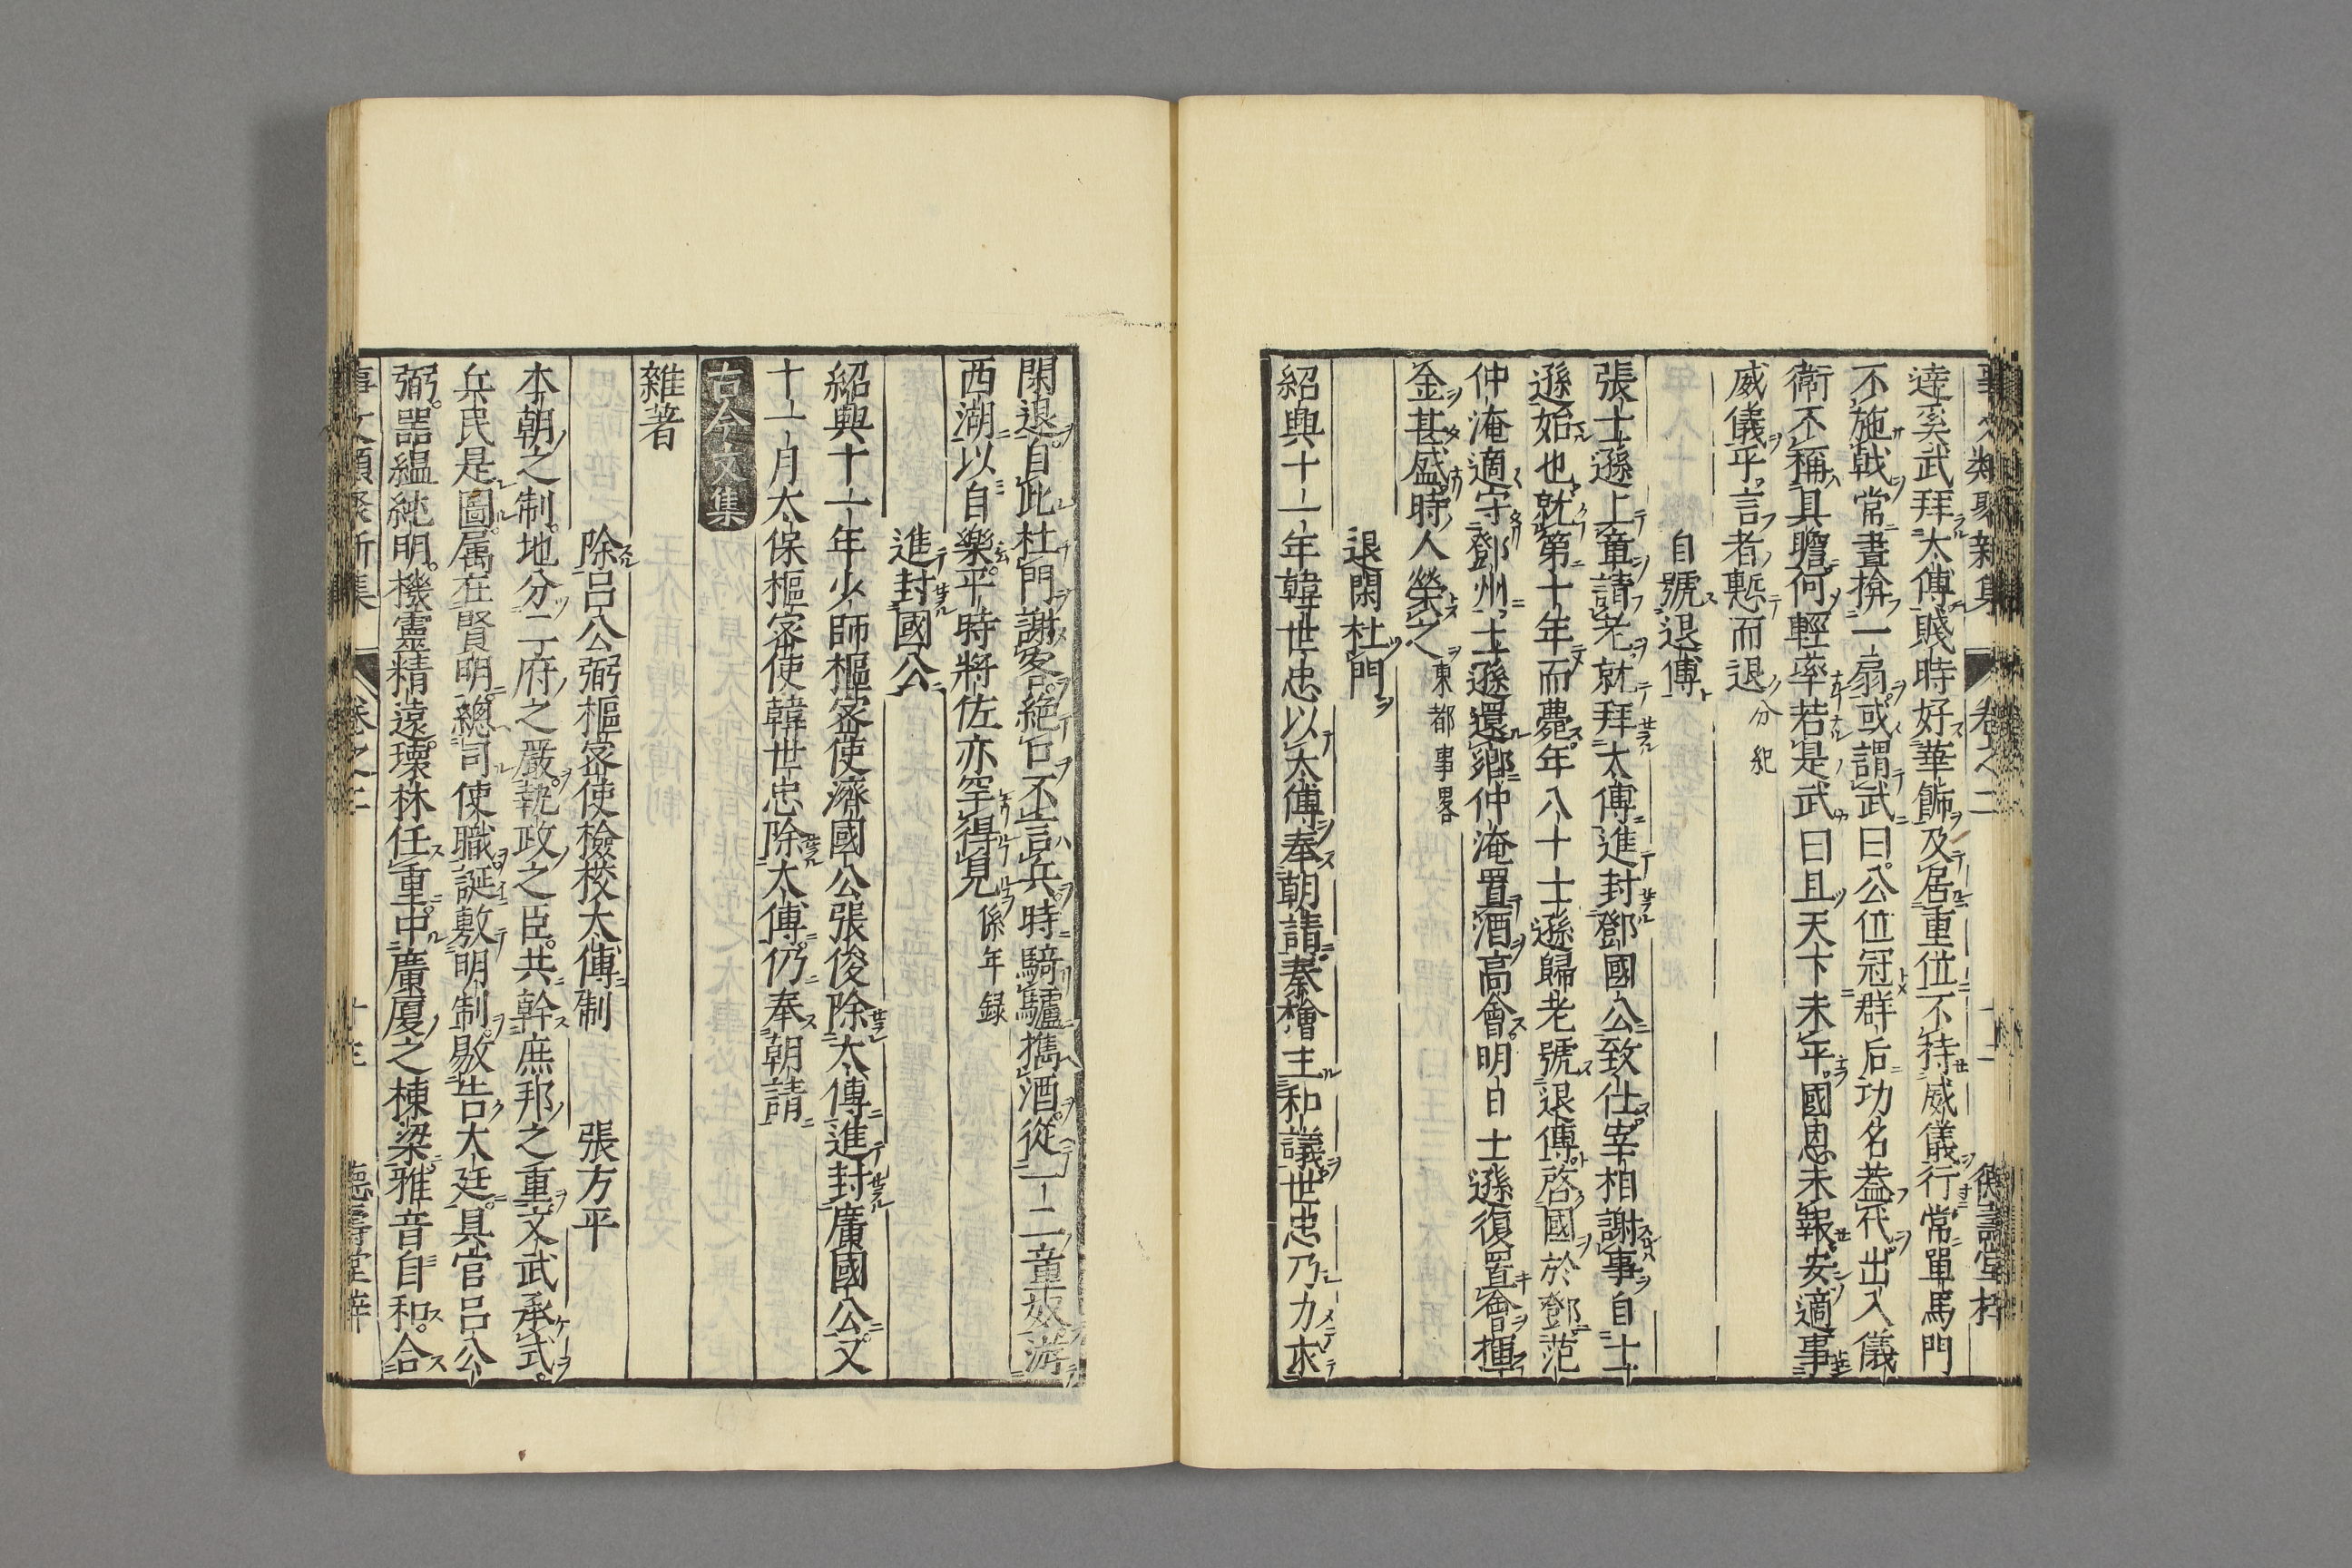 事文類聚新集 卷之二 德壽堂梓
達奚武拜太傅賤時好華飾及居重位不持威儀行常單馬門
不施戟常晝掩一扇或謂武曰公位冠群后功名蓋代出入儀
衛不稱具瞻何輕率若是武曰且天下未平國恩未報安適事
威儀乎言者慙而退 分紀
自號退傅
張士遜上章請老就拜太傅進封鄧國公致仕宰相謝事自士
遜始也就第十年而薨年八十士遜歸老號退傅啓國於鄧范
仲淹適守鄧州士遜還鄉仲淹置酒高會明日士遜復置會揮
金甚盛時人榮之 東都事畧
退閑杜門
紹興十一年韓世忠以太傅奉朝請秦檜主和議世忠乃力求
閑退自此杜門謝客絕口不言兵時騎驢擕酒從一二童奴游
西湖以自樂平時將佐亦罕得見 係年録
進封國公
紹興十一年少師樞密使濟國公張俊除太傅進封廣國公又
十一月太保樞密使韓世忠除太傅仍奉朝請
古今文集
雜著
除呂公弼樞密使檢校太傅制 張方平
本朝之制地分二府之嚴執政之臣共幹庶邦之重文武承式
兵民是圖属在賢明總司使職誕敷明制敭告大廷具官呂公
弼噐緼純明機靈精遠瓌材任重中廣厦之棟梁雅音自和合
事文類聚新集 卷之二 十三 德壽堂梓